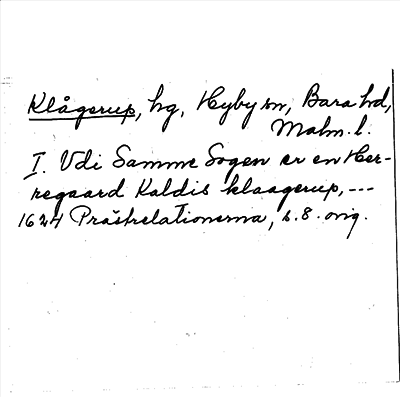 Klågerup, hg, Hyby sn, Bara hd,
Malm. l.
I. Udi Samme Sogen er en Her-
regaard Kaldis klaagerup, ---
1624 Prästrelationerna, s. 8. orig.